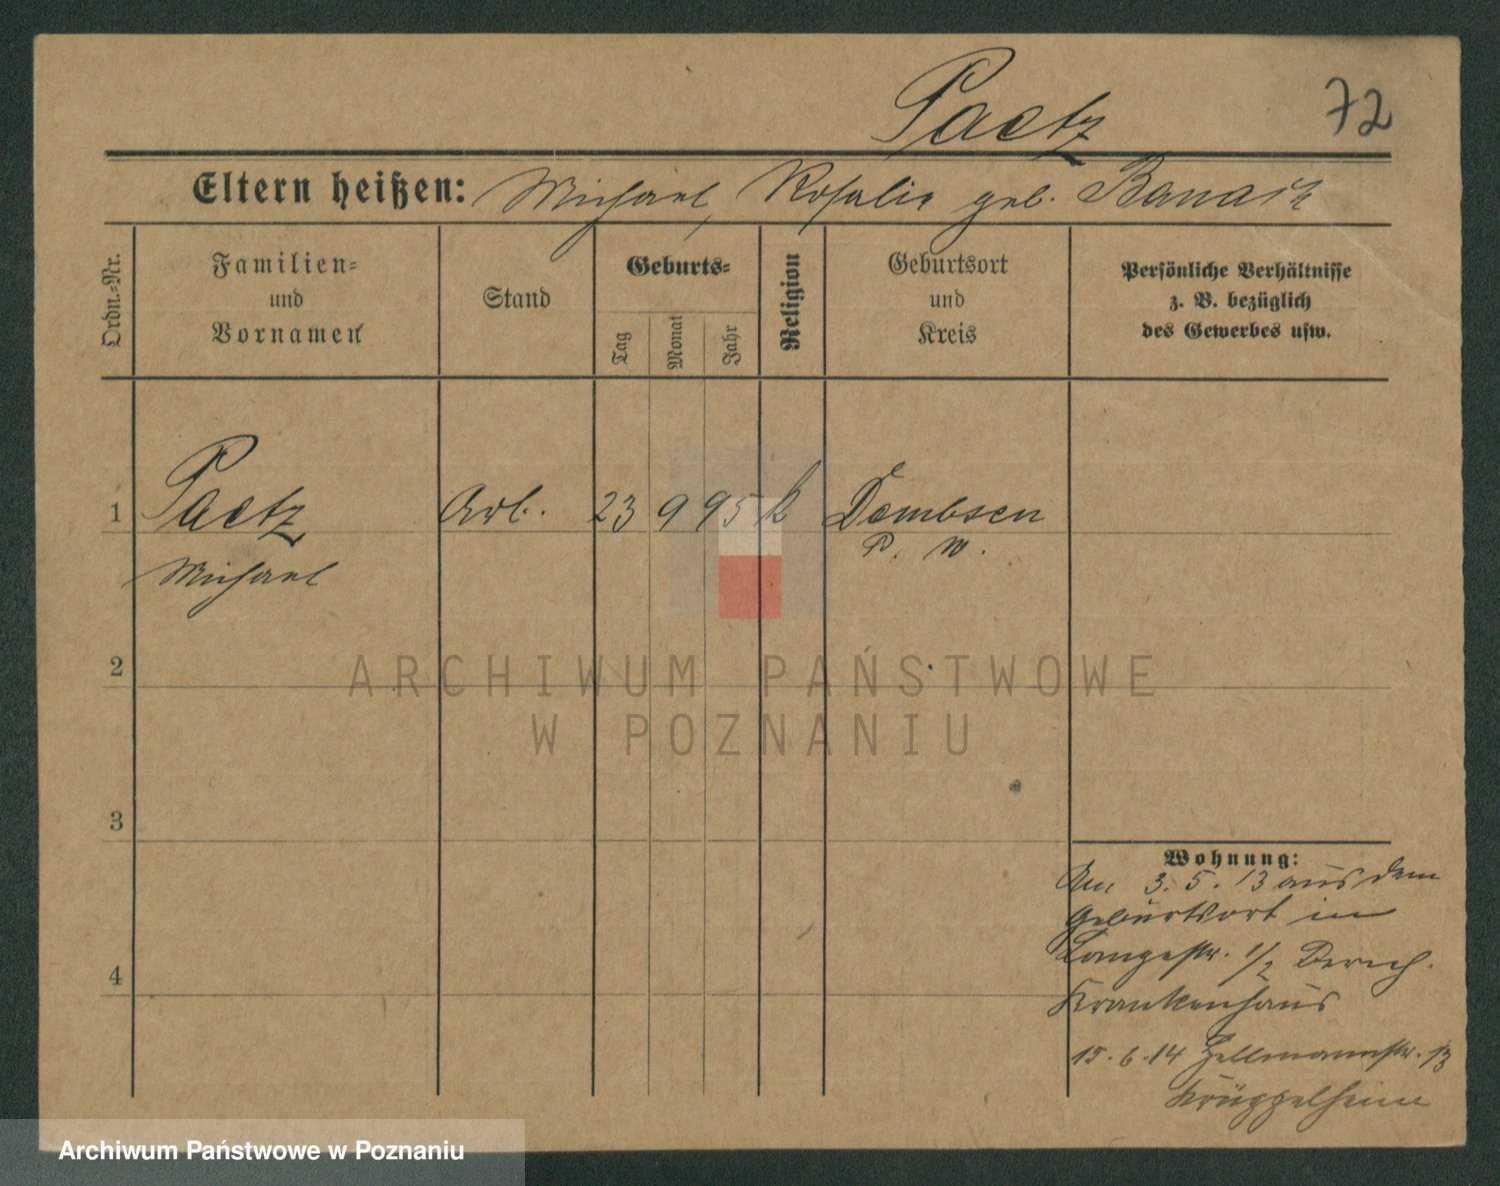 Paetz
72
Eltern heißen: Michael, Rosalie geb. Banasik
Ordn.-Nr.
Familien-
und
Vornamen
Stand
Geburts-
Tag
Monat
Jahr
Religion
Geburtsort
und
Kreis
Persönliche Verhältnisse
z. B. bezüglich
des Gewerbes usw.
1
Paetz
Arb.
23 9 95 k
Dembsen
P. W.
Michael
2
3
4
Wohnung:
Am 3.5.13 aus dem
Geburtsort in
Langestr. 1/2
Krankenhaus
15.6.14 13
Krüppelheim
ARCHIWUM PAŃSTWOWE
W POZNANIU
Archiwum Państwowe w Poznaniu